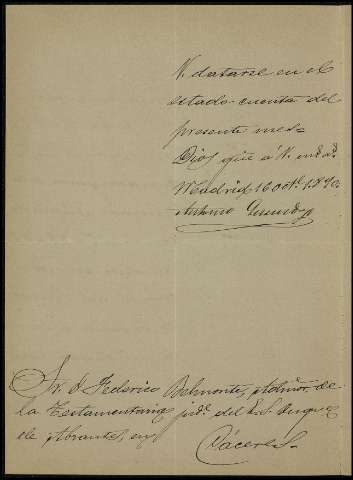 V. datarse en el
estado cuenta del
presente mes.
Dios gue á V. m.s a.s
Madrid 16 oct.e 1890
Antonio
Sr. D. Federico Belmonte, Admor. de
la Testamentaria del E. S. Duque
de Abrantes, en
Cáceres.